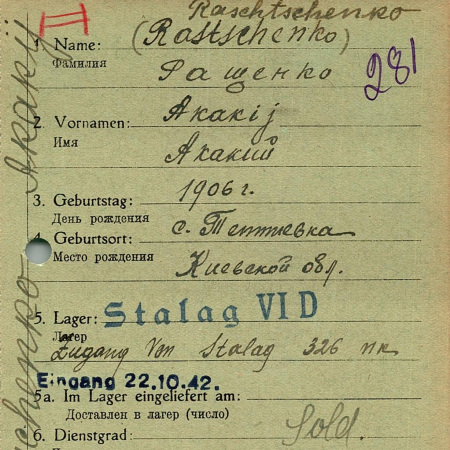 Raschtschenko
II
1. Name: (Rastschenko)
Фамилия
Ращенко
281
2. Vornamen: Akakij
Имя
Акакий
3. Geburtstag: 1906 г.
День рождения
4. Geburtsort: с. Теттиевка
Место рождения
Киевской обл.
5. Lager: Stalag VI D
Лагер
Zugang von Stalag 326
Eingang 22.10.42.
5a. Im Lager eingeliefert am:
Доставлен в лагер (число)
6. Dienstgrad: Sold.
Akakij